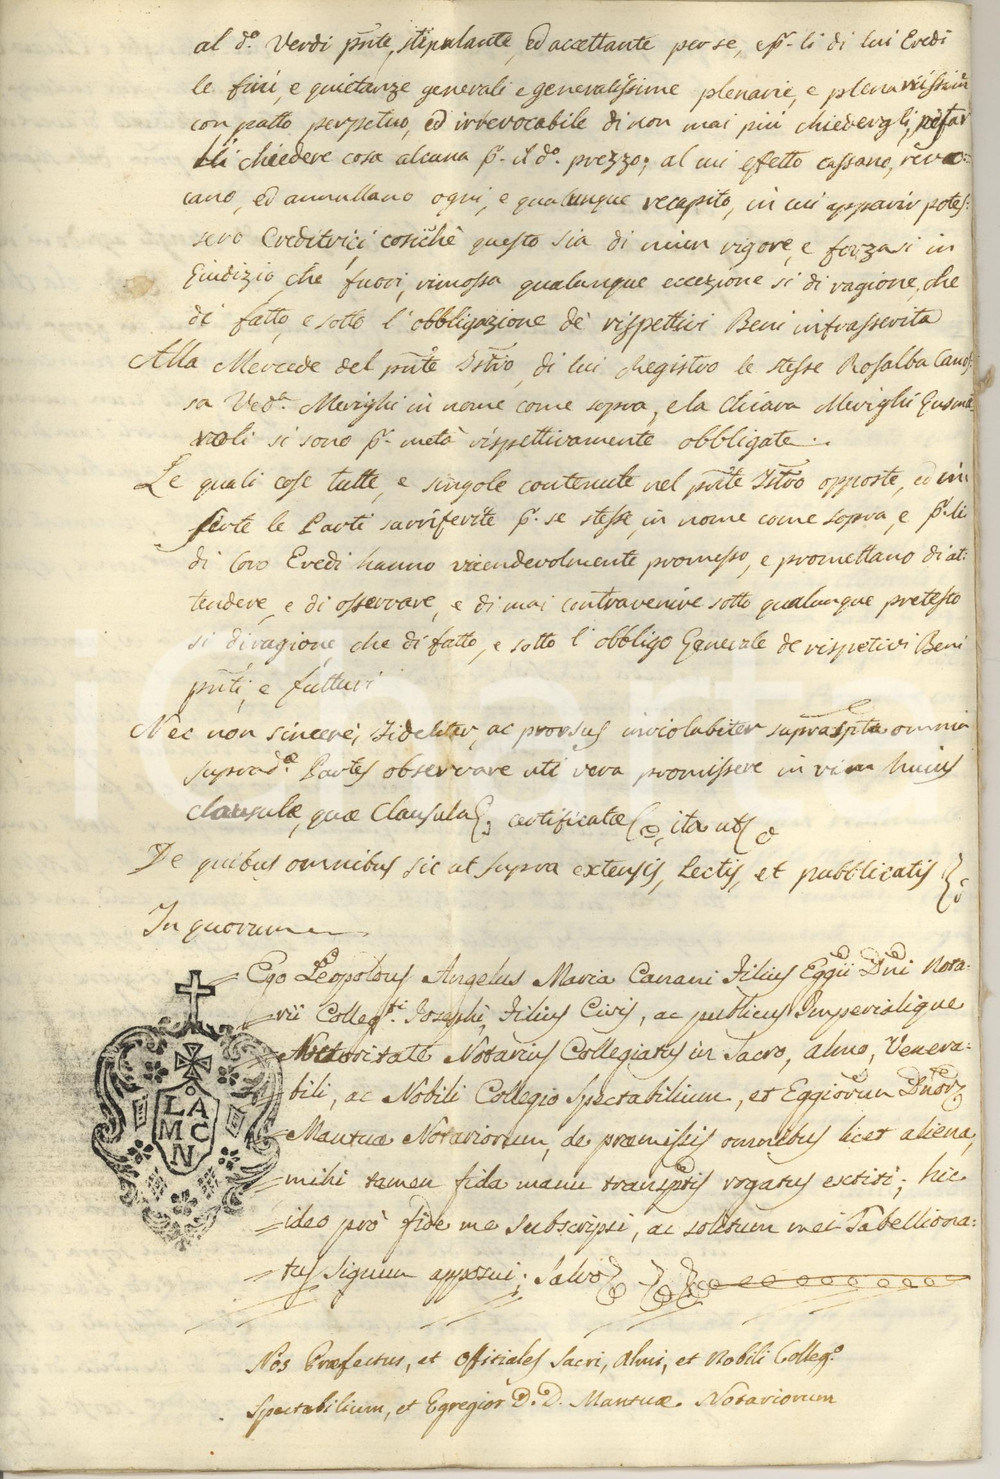 al do. Verdi pñte, stipulante, ed accettante per se, e pr. li di lui Eredi
le fini, e quietanze generali e generalissime plenarie, e plenarissime
con patto perpetuo, ed irrevocabile di non mai più chiedergli, né far
chiedere cosa alcuna pr. il do. prezzo; al cui effetto cassano, revo=
cano, ed annullano ogni, e qualunque recapito, in cui apparir potes=
sero Creditrici, cosichè questo sia di niun vigore, e forza sì in
Giudizio, che fuori, rimossa qualunque eccezione sì di ragione, che
di fatto, e sotto l'obbligazione de' rispettivi Beni infrasserita
Alla Mercede del pñte Istro, di lui Registro le stesse Rosalba Canos=
sa Veda. Merighi in nome come sopra, e la Chiara Merighi Gusma
roli si sono pr. metà rispettivamente obbligate.
Le quali cose tutte, e singole contenute nel pñte Istro opposte, ed in
serte le Parti surriferite pr. se stesse, in nome come sopra, e pr. li
di loro Eredi hanno vicendevolmente promesso, e promettano di at=
tendere, e di osservare, e di mai contravenire sotto qualunque pretesto
sì di ragione, che di fatto, e sotto l'obbligo Generale de rispetivi Beni
pñti, e futturi
Nec non sincere, Fideliter, ac prorsus inviolabiter suprascpta omnia
suprada. Partes observare uti vera promissere in vim huius
clausulæ, quæ Clausula; certificatæ, ita ut
De quibus omnibus sic ut supra extensis, Lectis, et pubblicatis
In quorum
Ego Leopoldus Angelus Maria Canani Filius Eggii Dñi Nota=
rii Collegti. Josephi, Filius Civis, ac publicus Imperialique
Auctoritate Notarius Collegiatus in Sacro, almo, Venera=
bili, ac Nobili Collegio Spectabilium, et Eggiorum Dñorz
Mantuæ Notariorum, de præmissis omnibus licet aliena,
mihi tamen fida manu transptis rogatus extiti; hic
ideo prò fide me subscripsi, ac solitum mei Tabelliona=
tus signum apposui; Salvo
LA
MC
N
Nos Præfectus, et Offitiales Sacri, Almi, et Nobili Collego.
Spectabilium, et Egregior D. D. Mantuæ Notariorum